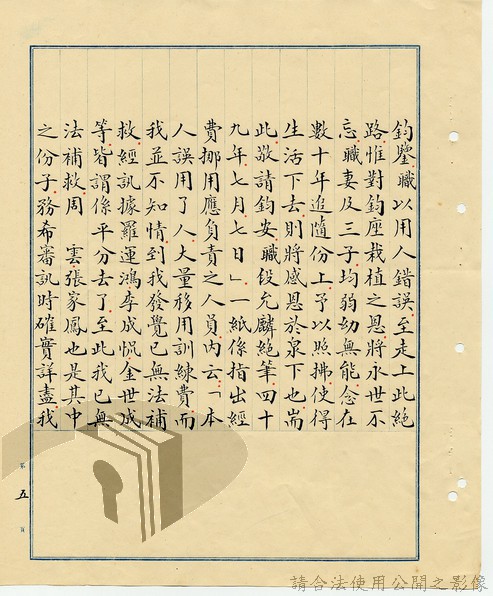 鈞鑒．職以用人錯誤．至走上此絕
路．惟對鈞座栽植之恩將永世不
忘．職妻及三子．均弱幼無能．念在
數十年追隨份上．予以照拂．使得
生活下去．則將感恩於泉下也．耑
此敬請鈞安．職段允麟絕筆．四十
九年七月七日」．一紙係指出經
費挪用應負責之人員內云．「本
人誤用了人．大量移用訓練費而
我並不知情．到我發覺已無法補
救．經訊據羅運鴻李成悅金世成
等．皆謂係平分去了．至此我已無
法補救．周　雲張家鳳也是其中
之份子務希審訊時確實詳盡我
第 五 頁
請合法使用公開之影像